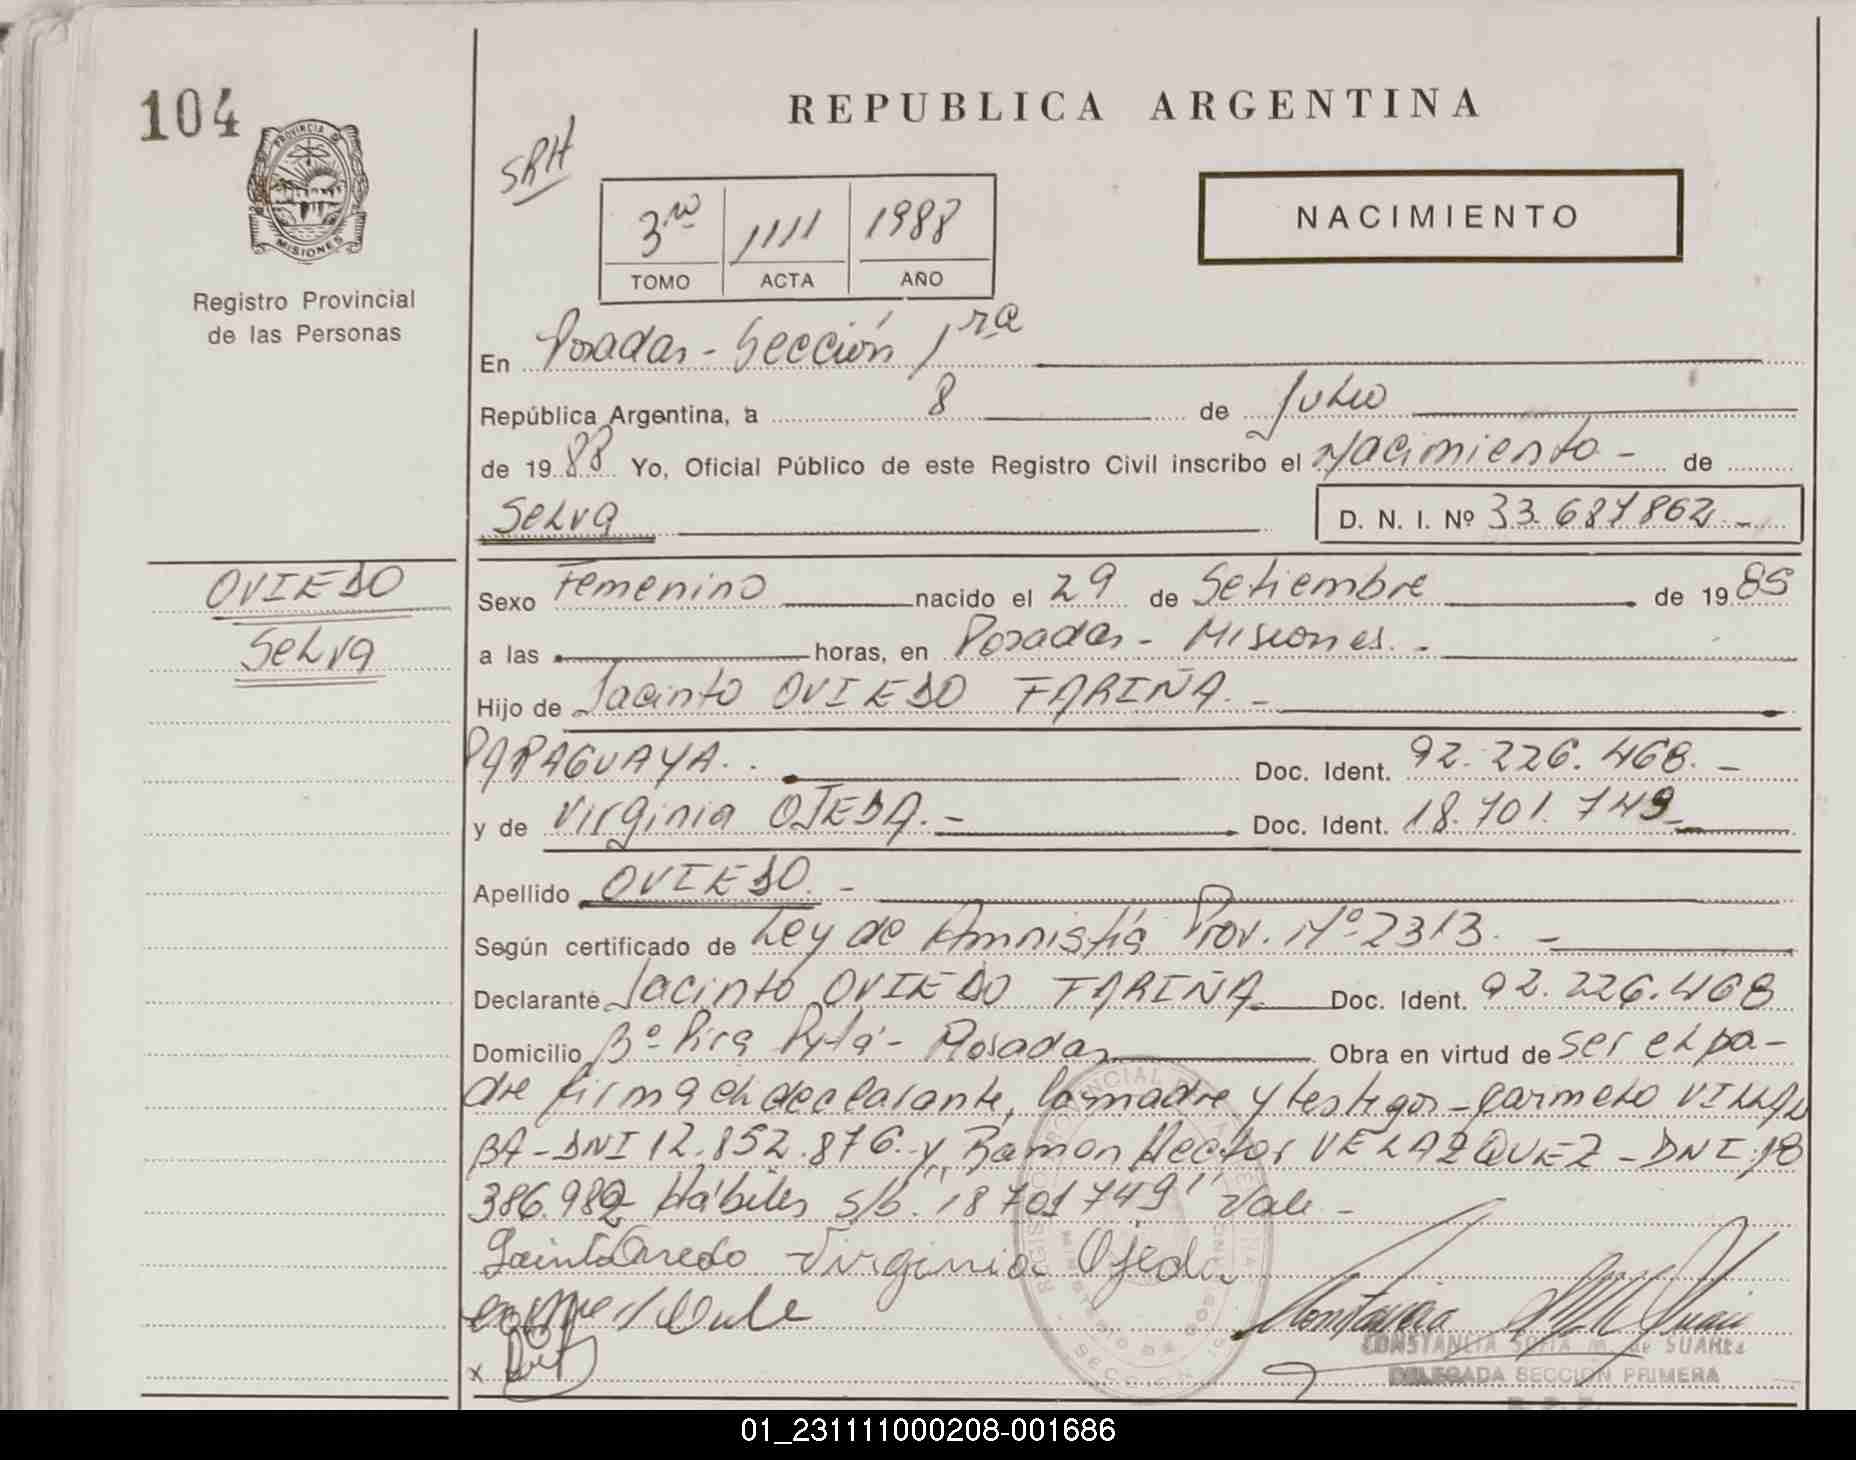 104
PROVINCIA DE
MISIONES
Registro Provincial
de las Personas
REPUBLICA ARGENTINA
SRH
3ro 1111 1988
TOMO ACTA AÑO
NACIMIENTO
En Posadas - Sección 1ra
República Argentina, a 8 de Julio
de 1988 Yo, Oficial Público de este Registro Civil inscribo el Nacimiento - de
Selva D. N. I. Nº 33.687862 -
OVIEDO
Selva
Sexo Femenino nacido el 29 de Setiembre de 1985
a las horas, en Posadas - Misiones. -
Hijo de Jacinto OVIEDO FARIÑA. -
PARAGUAYA. . Doc. Ident. 92.226.468. -
y de Virginia OJEDA. - Doc. Ident. 18.701.749
Apellido OVIEDO. -
Según certificado de Ley de Amnistía Prov. Nº 2313. -
Declarante Jacinto OVIEDO FARIÑA Doc. Ident. 92.226.468
Domicilio Bº Pira Pytá - Posadas Obra en virtud de ser el pa-
dre firma el declarante, la madre y testigos - Carmelo VILLAL
BA - DNI 12.852.876. y Ramon Hector VELAZQUEZ - DNI: 18
386.982 Hábiles s/b. "18701749" Vale -
Virginia Ojeda
CONSTANCIA SOFIA M. de SUAREZ
DELEGADA SECCION PRIMERA
01_231111000208-001686